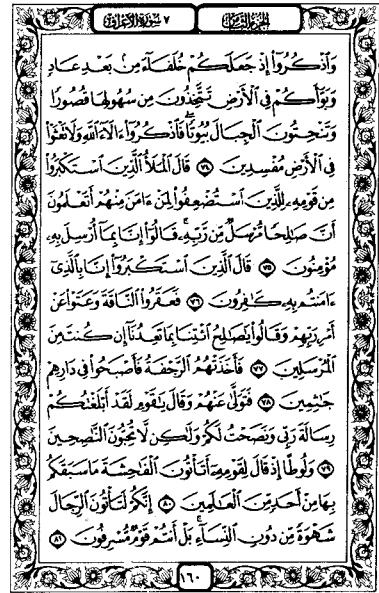 الجزء الثامن ٧ سورة الأعراف
وَاذْكُرُوا إِذْ جَعَلَكُمْ خُلَفَاءَ مِنْ بَعْدِ عَادٍ
وَبَوَّأَكُمْ فِي الْأَرْضِ تَتَّخِذُونَ مِنْ سُهُولِهَا قُصُورًا
وَتَنْحِتُونَ الْجِبَالَ بُيُوتًا فَاذْكُرُوا ءَالَاءَ اللَّهِ وَلَا تَعْثَوْا
فِي الْأَرْضِ مُفْسِدِينَ ٧٤ قَالَ الْمَلَأُ الَّذِينَ اسْتَكْبَرُوا
مِنْ قَوْمِهِ لِلَّذِينَ اسْتُضْعِفُوا لِمَنْ ءَامَنَ مِنْهُمْ أَتَعْلَمُونَ
أَنَّ صَالِحًا مُرْسَلٌ مِنْ رَبِّهِ قَالُوا إِنَّا بِمَا أُرْسِلَ بِهِ
مُؤْمِنُونَ ٧٥ قَالَ الَّذِينَ اسْتَكْبَرُوا إِنَّا بِالَّذِي
ءَامَنْتُمْ بِهِ كَافِرُونَ ٧٦ فَعَقَرُوا النَّاقَةَ وَعَتَوْا عَنْ
أَمْرِ رَبِّهِمْ وَقَالُوا يَاصَالِحُ ائْتِنَا بِمَا تَعِدُنَا إِنْ كُنْتَ مِنَ
الْمُرْسَلِينَ ٧٧ فَأَخَذَتْهُمُ الرَّجْفَةُ فَأَصْبَحُوا فِي دَارِهِمْ
جَاثِمِينَ ٧٨ فَتَوَلَّى عَنْهُمْ وَقَالَ يَاقَوْمِ لَقَدْ أَبْلَغْتُكُمْ
رِسَالَةَ رَبِّي وَنَصَحْتُ لَكُمْ وَلَكِنْ لَا تُحِبُّونَ النَّاصِحِينَ
٧٩ وَلُوطًا إِذْ قَالَ لِقَوْمِهِ أَتَأْتُونَ الْفَاحِشَةَ مَا سَبَقَكُمْ
بِهَا مِنْ أَحَدٍ مِنَ الْعَالَمِينَ ٨٠ إِنَّكُمْ لَتَأْتُونَ الرِّجَالَ
شَهْوَةً مِنْ دُونِ النِّسَاءِ بَلْ أَنْتُمْ قَوْمٌ مُسْرِفُونَ ٨١
١٦٠